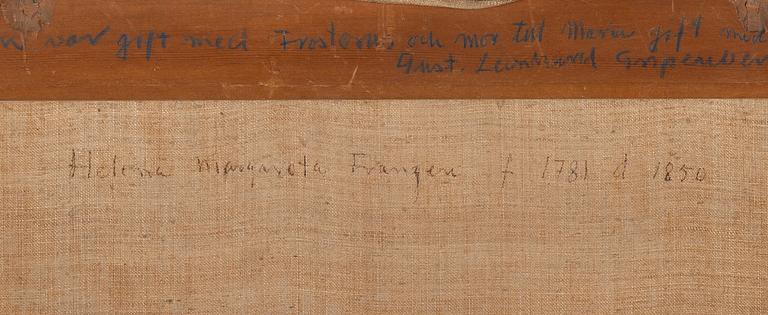 n var gift med Frosterus och mor till Maria gift med
Gust. Leonhard Gripenber
Helena Margareta Franzen f 1781 d 1850